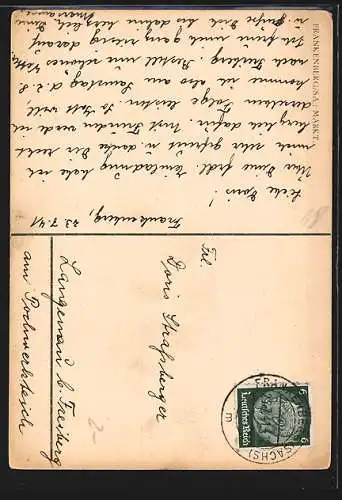 FRANKENBERG/SA.: MARKT
Frankenberg, 23.7.41
Liebe Doris!
Über Deine frdl. Einladung habe ich
mich sehr gefreut u. danke Dir recht
herzlich dafür. Mit Freuden werde ich
derselben Folge leisten. Ist's weit
komme ich also am Samstag, d. 2. 8.
nach Freiberg. Bestell nur schönes Wetter.
Ich freue mich ganz riesig darauf
u. grüße Dich bis dahin herzlich
Deine
Frl.
Doris Straßberger
Langenau b. Freiberg
am Pochwerkteich
Deutsches Reich
6 6
(SACHS)